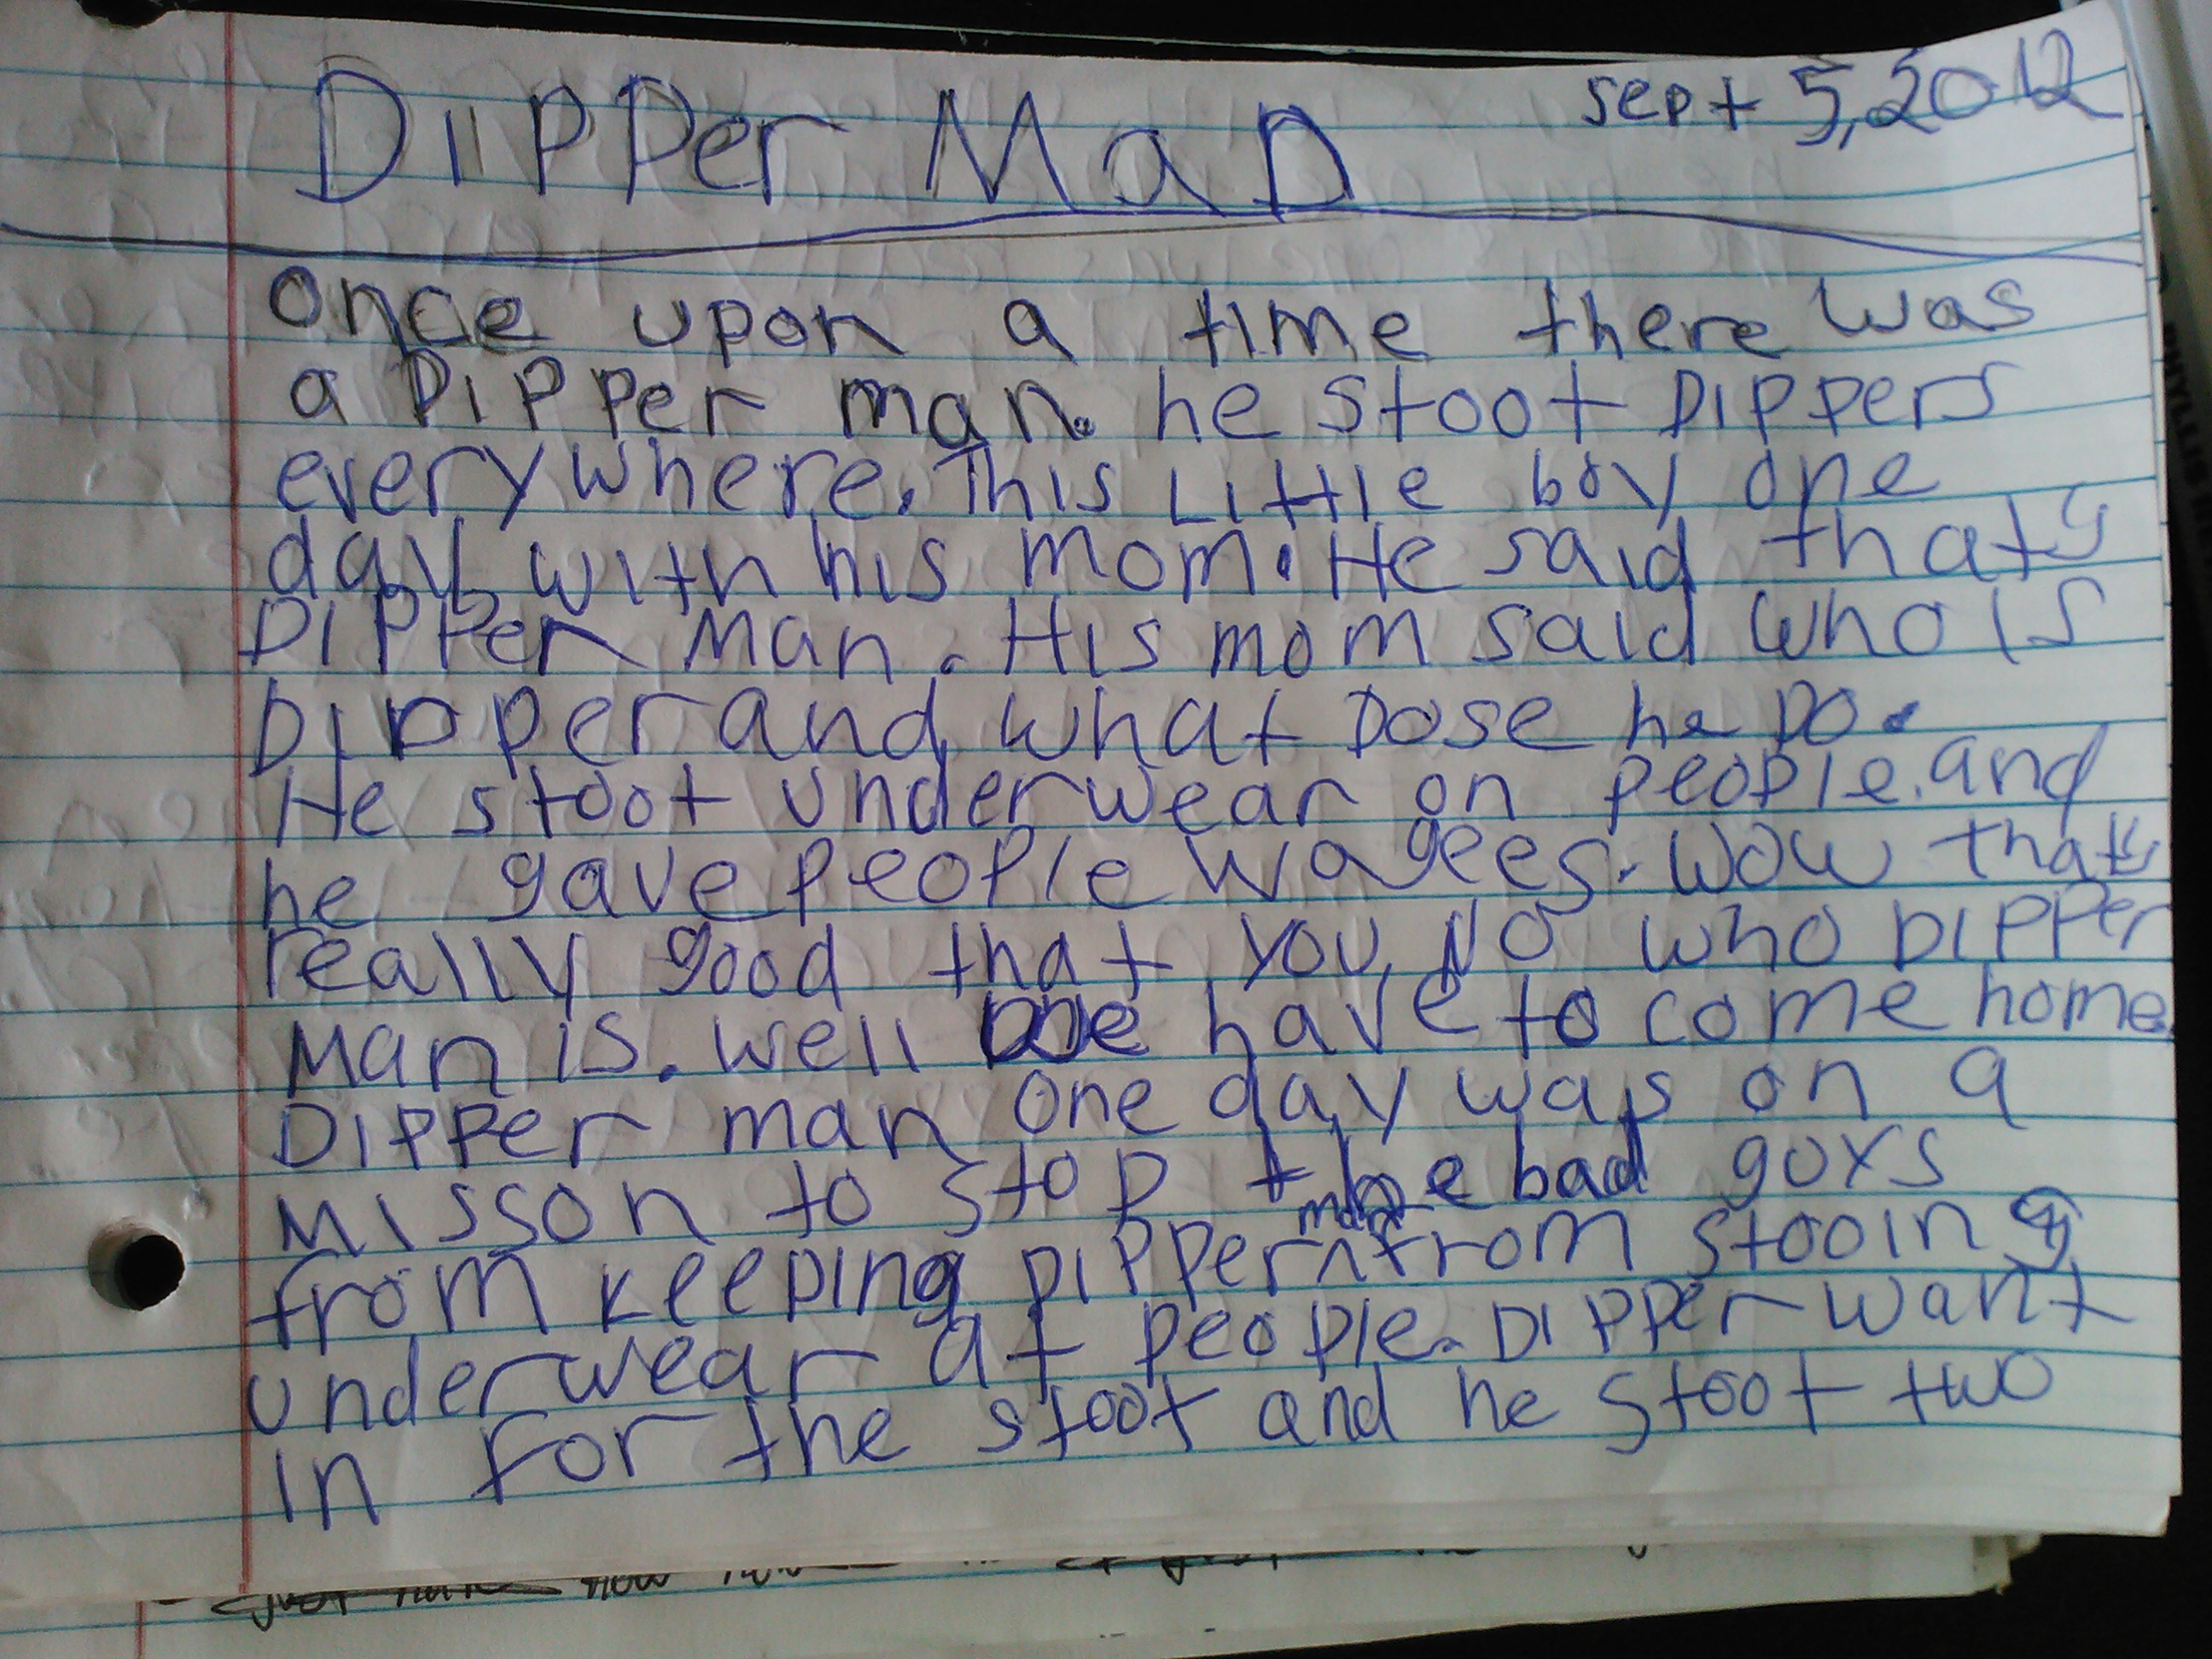 DiPPer Man
sept 5, 2012
once upon a time there was
a DiPPer man. he stoot Dippers
everywhere. This Little boy one
day with his mom. He said thats
DiPPer Man. His mom said who is
Dipper and what Dose he Do.
He stoot underwear on people. and
he gave people wagees. wow thats
really good that you No who DiPPer
Man is. well we have to come home.
DiPPer man one day was on a
Misson to stop the bad goys
from keeping DiPPer man from stooing
underwear at people. DiPPer want
in for the stoot and he stoot two